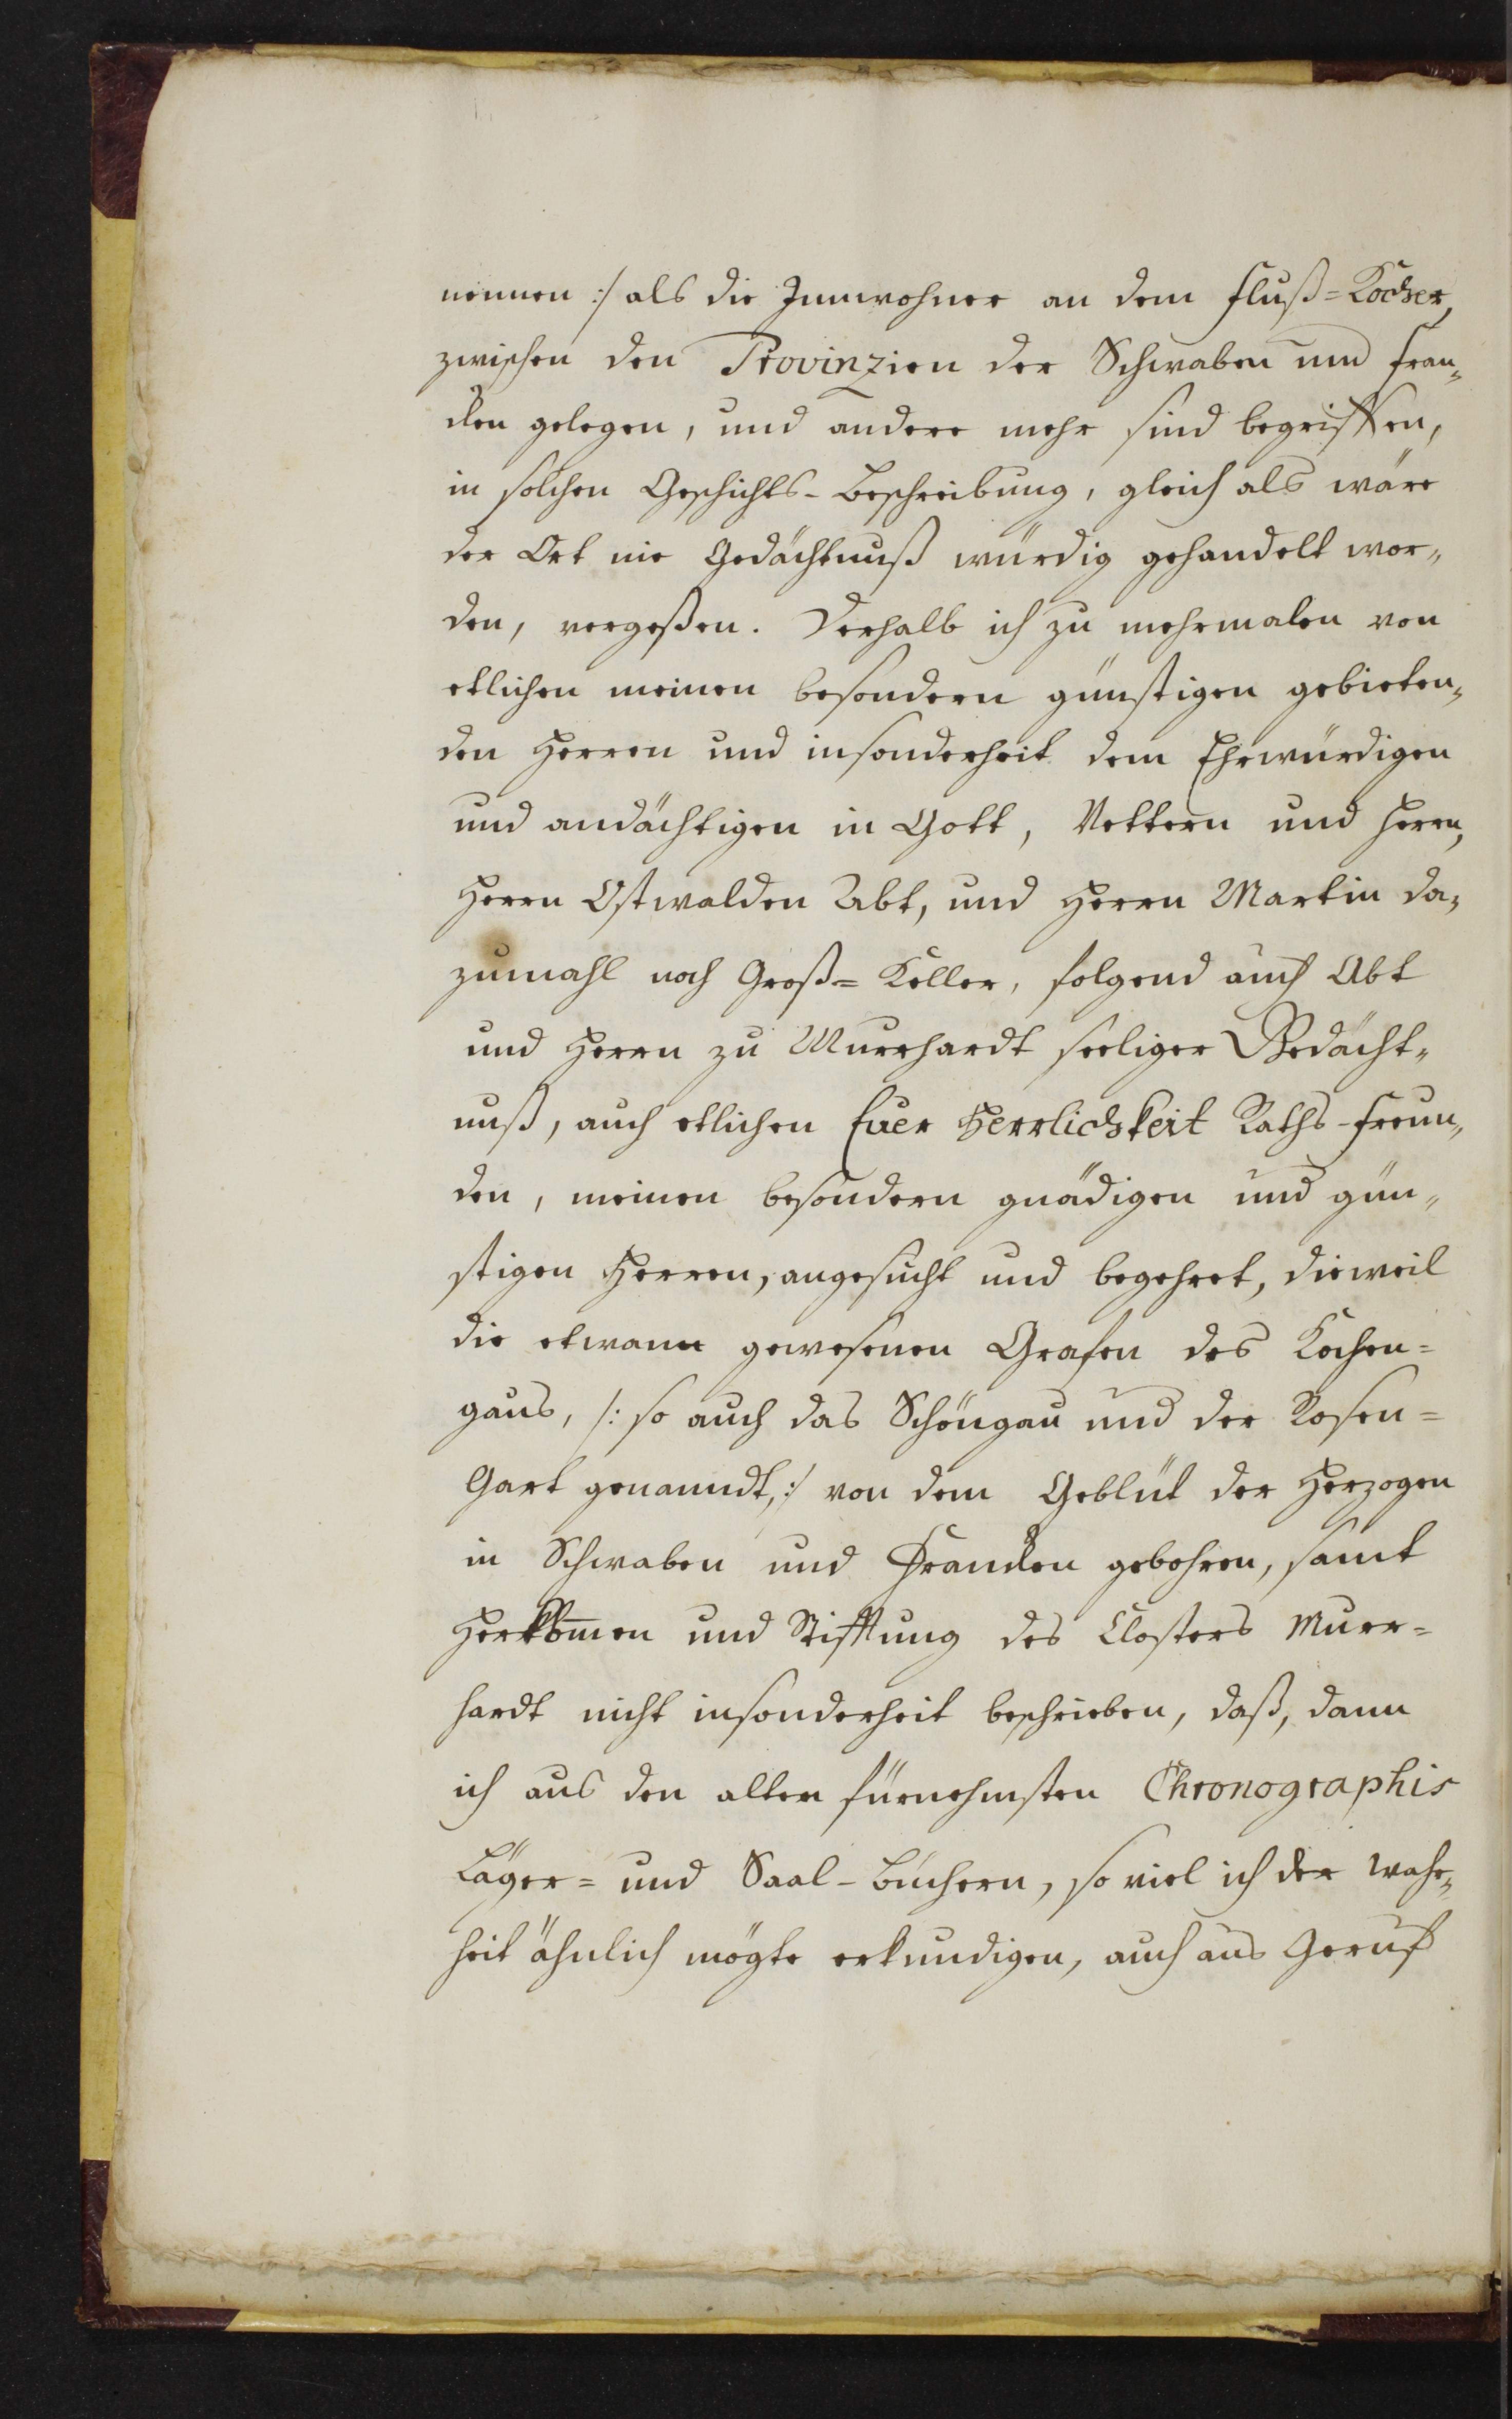 nennen :/ als die Innwohner an dem Fluß=Kocher,
zwischen den Provinzien der Schwaben und Fran„
cken gelegen, und andere mehr sind begriffen,
in solchen Geschichts-Beschreibung, gleich als wäre
der Ort nie Gedächtnuß würdig gehandelt wor„
den, vergeßen. Derhalb ich zu mehrmalen von
etlichen meinen besondern günstigen gebieten„
den Herren und insonderheit dem Ehrwürdigen
und andächtigen in Gott, Vettern und Herrn,
Herrn Ostwalden Abt, und Herrn Martin da„
zumahl noch Groß=Keller, folgend auch Abt
und Herrn zu Murrhardt seeliger Gedächt„
nuß, auch etlichen Euer Herrlichkeit Raths-Freun„
den, meinen besondern gnädigen und gün„
stigen Herren, angesucht und begehret, dieweil
die etwann gewesenen Grafen des Kochen=
gaus, /: so auch das Schöngau und der Rosen=
Gart genanndt, :/ von dem Geblüt der Herzogen
in Schwaben und Francken gebohren, samt
Herkommen und Stifftung des Closters Murr=
hardt nicht insonderheit beschrieben, daß, dann
ich aus den alten fürnehmsten Chronographis
Läger= und Saal-Büchern, so viel ich der Wahr„
heit ähnlich mögte erkundigen, auch aus Geruf